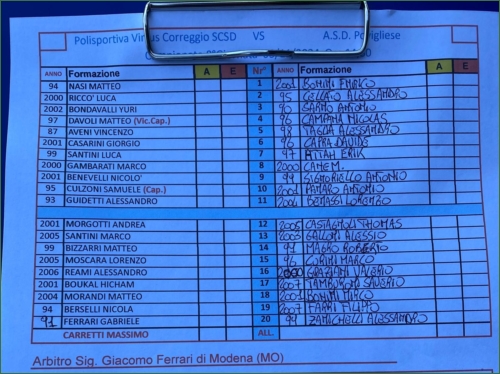 Polisportiva Virtus Correggio SCSD VS A.S.D. Povigliese
ANNO Formazione A E Nr° ANNO Formazione A E
94 NASI MATTEO 1 2001 BONINI ENRICO
2000 RICCO' LUCA 2 95 ALESSANDRO
2002 BONDAVALLI YURI 3 90 SARNO ANTONIO
97 DAVOLI MATTEO (Vic.Cap.) 4 96 CAMPANA NICOLAS
87 AVENI VINCENZO 5 98 TAGLIA ALESSANDRO
2001 CASARINI GIORGIO 6 96 CAPRA DAVIDE
99 SANTINI LUCA 7 97 ATTIAH ERIK
2000 GAMBARATI MARCO 8 2000 M.
2001 BENEVELLI NICOLO' 9 99 SIGNORIELLO ANTONIO
95 CULZONI SAMUELE (Cap.) 10 2001 ANTONIO
93 GUIDETTI ALESSANDRO 11 LORENZO
2001 MORGOTTI ANDREA 12 2005 CASTAGNOLI THOMAS
2005 SANTINI MARCO 13 2005 GALLONI ALESSIO
99 BIZZARRI MATTEO 14 94 MAGRO ROBERTO
2005 MOSCARA LORENZO 15 96 MARCO
2006 REAMI ALESSANDRO 16 GRAZIANI VALERIO
2001 BOUKAL HICHAM 17 2007 TAMBURONI SAVERIO
2004 MORANDI MATTEO 18 2001 BONINI MIRCO
94 BERSELLI NICOLA 19 2007 FARRI FILIPPO
91 FERRARI GABRIELE 20 94 ZANICHELLI ALESSANDRO
CARRETTI MASSIMO ALL.
Arbitro Sig. Giacomo Ferrari di Modena (MO)